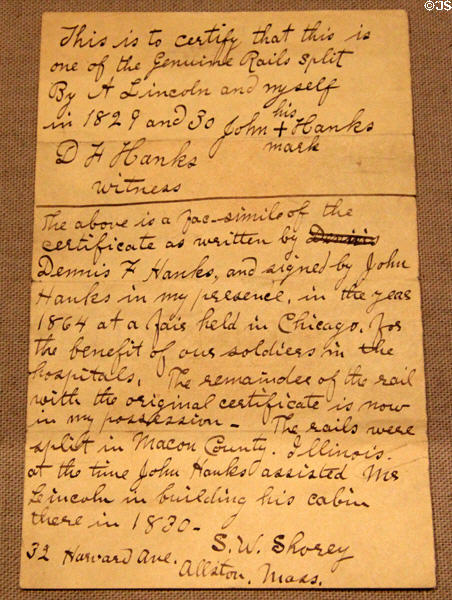 © JS
This is to certify that this is
one of the Genuine Rails split
By A Lincoln and myself
in 1829 and 30 John his + mark Hanks
D F Hanks
witness
The above is a fac-simile of the
certificate as written by Dennis
Dennis F Hanks, and signed by John
Hanks in my presence, in the year
1864 at a fair held in Chicago, for
the benefit of our soldiers in the
hospitals. The remainder of the rail
with the original certificate is now
in my possession - The rails were
split in Macon County. Illinois.
at the time John Hanks assisted Mr
Lincoln in building his cabin
there in 1830 -
S. W. Shorey
32 Harvard Ave. Allston, Mass.